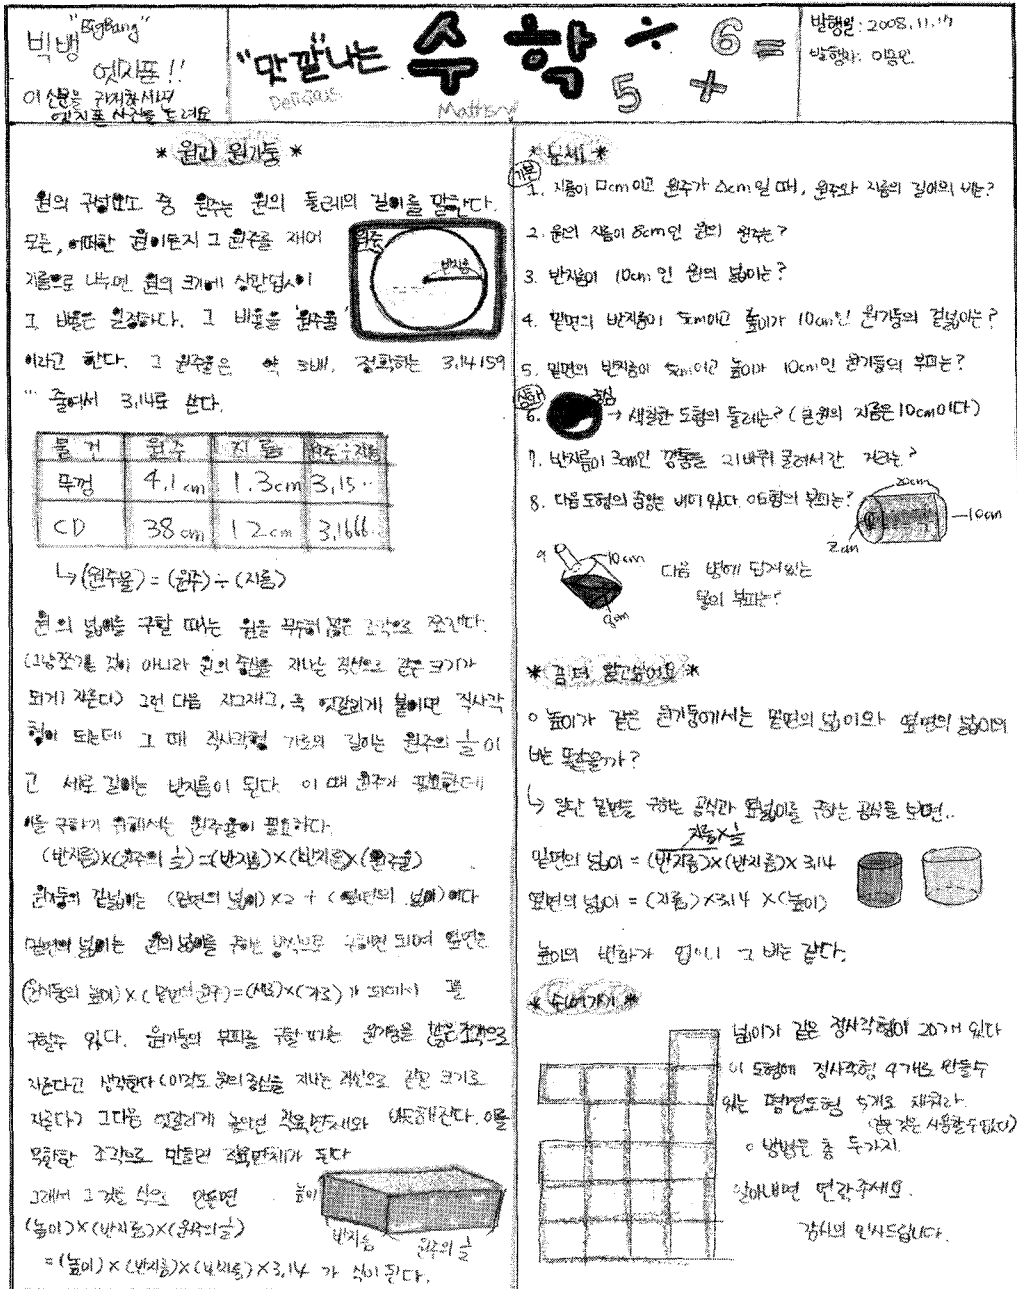 "BigBang"
빅뱅
엣지표!!
이 신문을 구독하시면
엣지표 사진을 드려요
"맛깔"나는 수학 ÷ 6 =
5 +
Delicious
Math
발행일: 2008.11.17
발행자: 이승민
* 원과 원기둥 *
원의 구성요소 중 원주는 원의 둘레의 길이를 말한다.
모든, 어떠한 원이든지 그 원주를 재어
지름으로 나누면 원의 크기에 상관없이
그 비율은 일정하다. 그 비율을 '원주율'
이라고 한다. 그 원주율은 약 3배, 정확하는 3.14159
… 줄여서 3.14로 쓴다.
원주
반지름
물건 원주 지름 원주÷지름
뚜껑 4.1cm 1.3cm 3.15..
CD 38cm 12cm 3.1666..
↳ (원주율) = (원주) ÷ (지름)
원의 넓이를 구할 때는 원을 무수히 많은 조각으로 쪼갠다.
(그냥 쪼개는 것이 아니라 원의 중심을 지나는 직선으로 같은 크기가
되게 자른다) 그런 다음 지그재그, 즉 엇갈리게 붙이면 직사각
형이 되는데 그 때 직사각형 가로의 길이는 원주의 ½이
고 세로 길이는 반지름이 된다. 이 때 원주가 필요한데
이를 구하기 위해서는 원주율이 필요하다.
(반지름)×(원주의 ½)=(반지름)×(반지름)×(원주율)
원기둥의 겉넓이는 (밑면의 넓이)×2 + (옆면의 넓이)이다
밑면의 넓이는 원의 넓이를 구하는 방식으로 구하면 되며 옆면은
(원기둥의 높이)×(밑면의 원주)=(세로)×(가로)가 되며서
구할수 있다. 원기둥의 부피를 구할 때는 원기둥을 많은 조각으로
자른다고 생각한다 (이것도 원의 중심을 지나는 직선으로 같은 크기로
자른다) 그다음 엇갈리게 놓으면 직육면체와 비슷해진다. 이를
무한한 조각으로 만들면 직육면체가 된다
그래서 그것을 식으로 만들면
(높이)×(반지름)×(원주의½)
=(높이)×(반지름)×(반지름)×3.14 가 식이 된다.
높이
반지름
원주의 ½
* 문제 *
기본
1. 지름이 □cm이고 원주가 △cm일 때, 원주와 지름의 길이의 비는?
2. 원의 지름이 8cm인 원의 원주는?
3. 반지름이 10cm인 원의 넓이는?
4. 밑면의 반지름이 5cm이고 높이가 10cm인 원기둥의 겉넓이는?
5. 밑면의 반지름이 5cm이고 높이가 10cm인 원기둥의 부피는?
심화
6. 중심 → 색칠한 도형의 둘레는? (큰 원의 지름은 10cm이다)
7. 반지름이 3cm인 깡통을 21바퀴 굴려서 간 거리는?
8. 다음 도형의 중앙은 비어 있다. 이 도형의 부피는?
20cm
10cm
2cm
9
10cm
8cm
다음 병에 담겨있는
물의 부피는?
* 좀 더 알고싶어요 *
○ 높이가 같은 원기둥에서는 밑면의 넓이와 옆면의 넓이의
비는 똑같을까?
↳ 일단 밑면을 구하는 공식과 옆넓이를 구하는 공식을 보면..
지름×½
밑면의 넓이 = (반지름)×(반지름)×3.14
옆면의 넓이 = (지름)×3.14×(높이)
높이의 변화가 없으니 그 비는 같다.
* 쉬어가기 *
넓이가 같은 정사각형이 20개 있다
이 도형에 정사각형 4개로 만들수
있는 평면도형 5개로 채워라.
(같은 것은 사용할수없다)
○ 방법은 총 두가지.
알아내면 연락주세요.
감사의 인사드립니다.